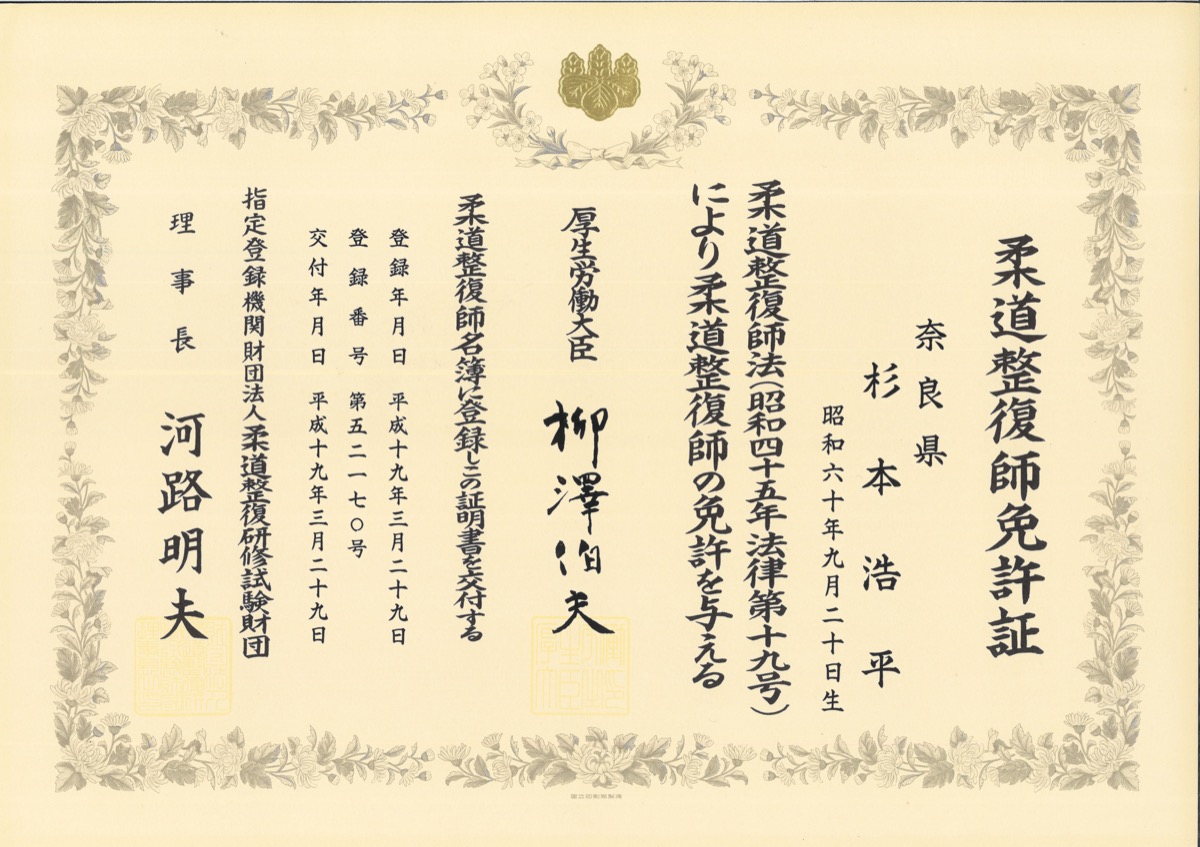 柔道整復師免許証
奈良県
杉本浩平
昭和六十年九月二十日生
柔道整復師法(昭和四十五年法律第十九号)
により柔道整復師の免許を与える
厚生労働大臣 柳澤伯夫
柔道整復師名簿に登録しこの証明書を交付する
登録年月日 平成十九年三月二十九日
登録番号 第五二一七〇号
交付年月日 平成十九年三月二十九日
指定登録機関財団法人柔道整復研修試験財団
理事長 河路明夫